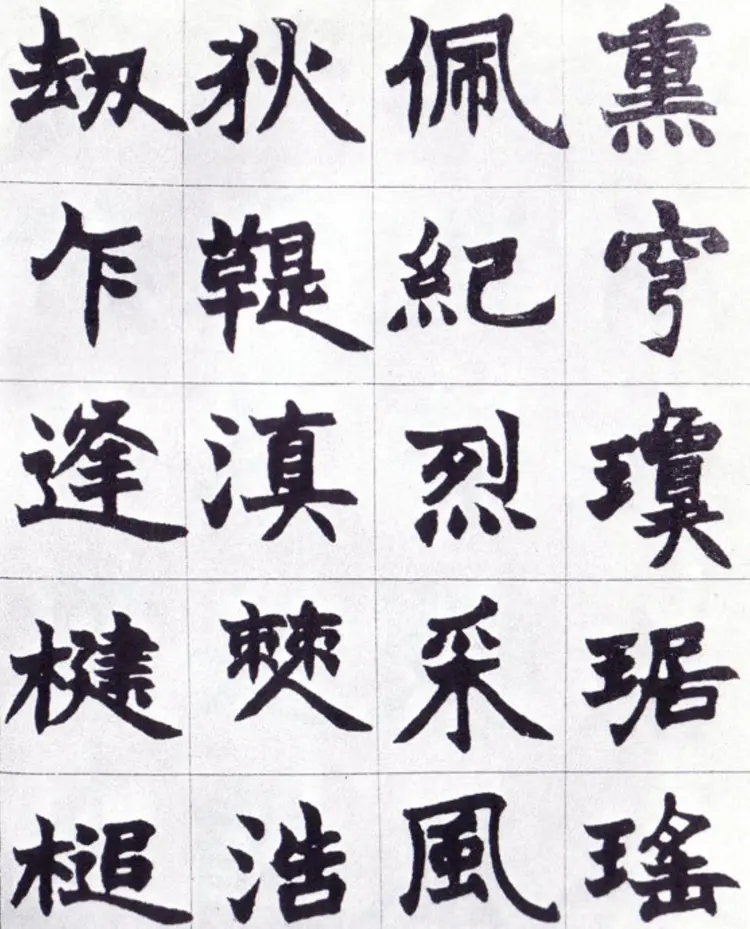 熏穹瓊琚瑤
佩紀烈采風
狄鞮滇僰浩
刼乍逢楗槌